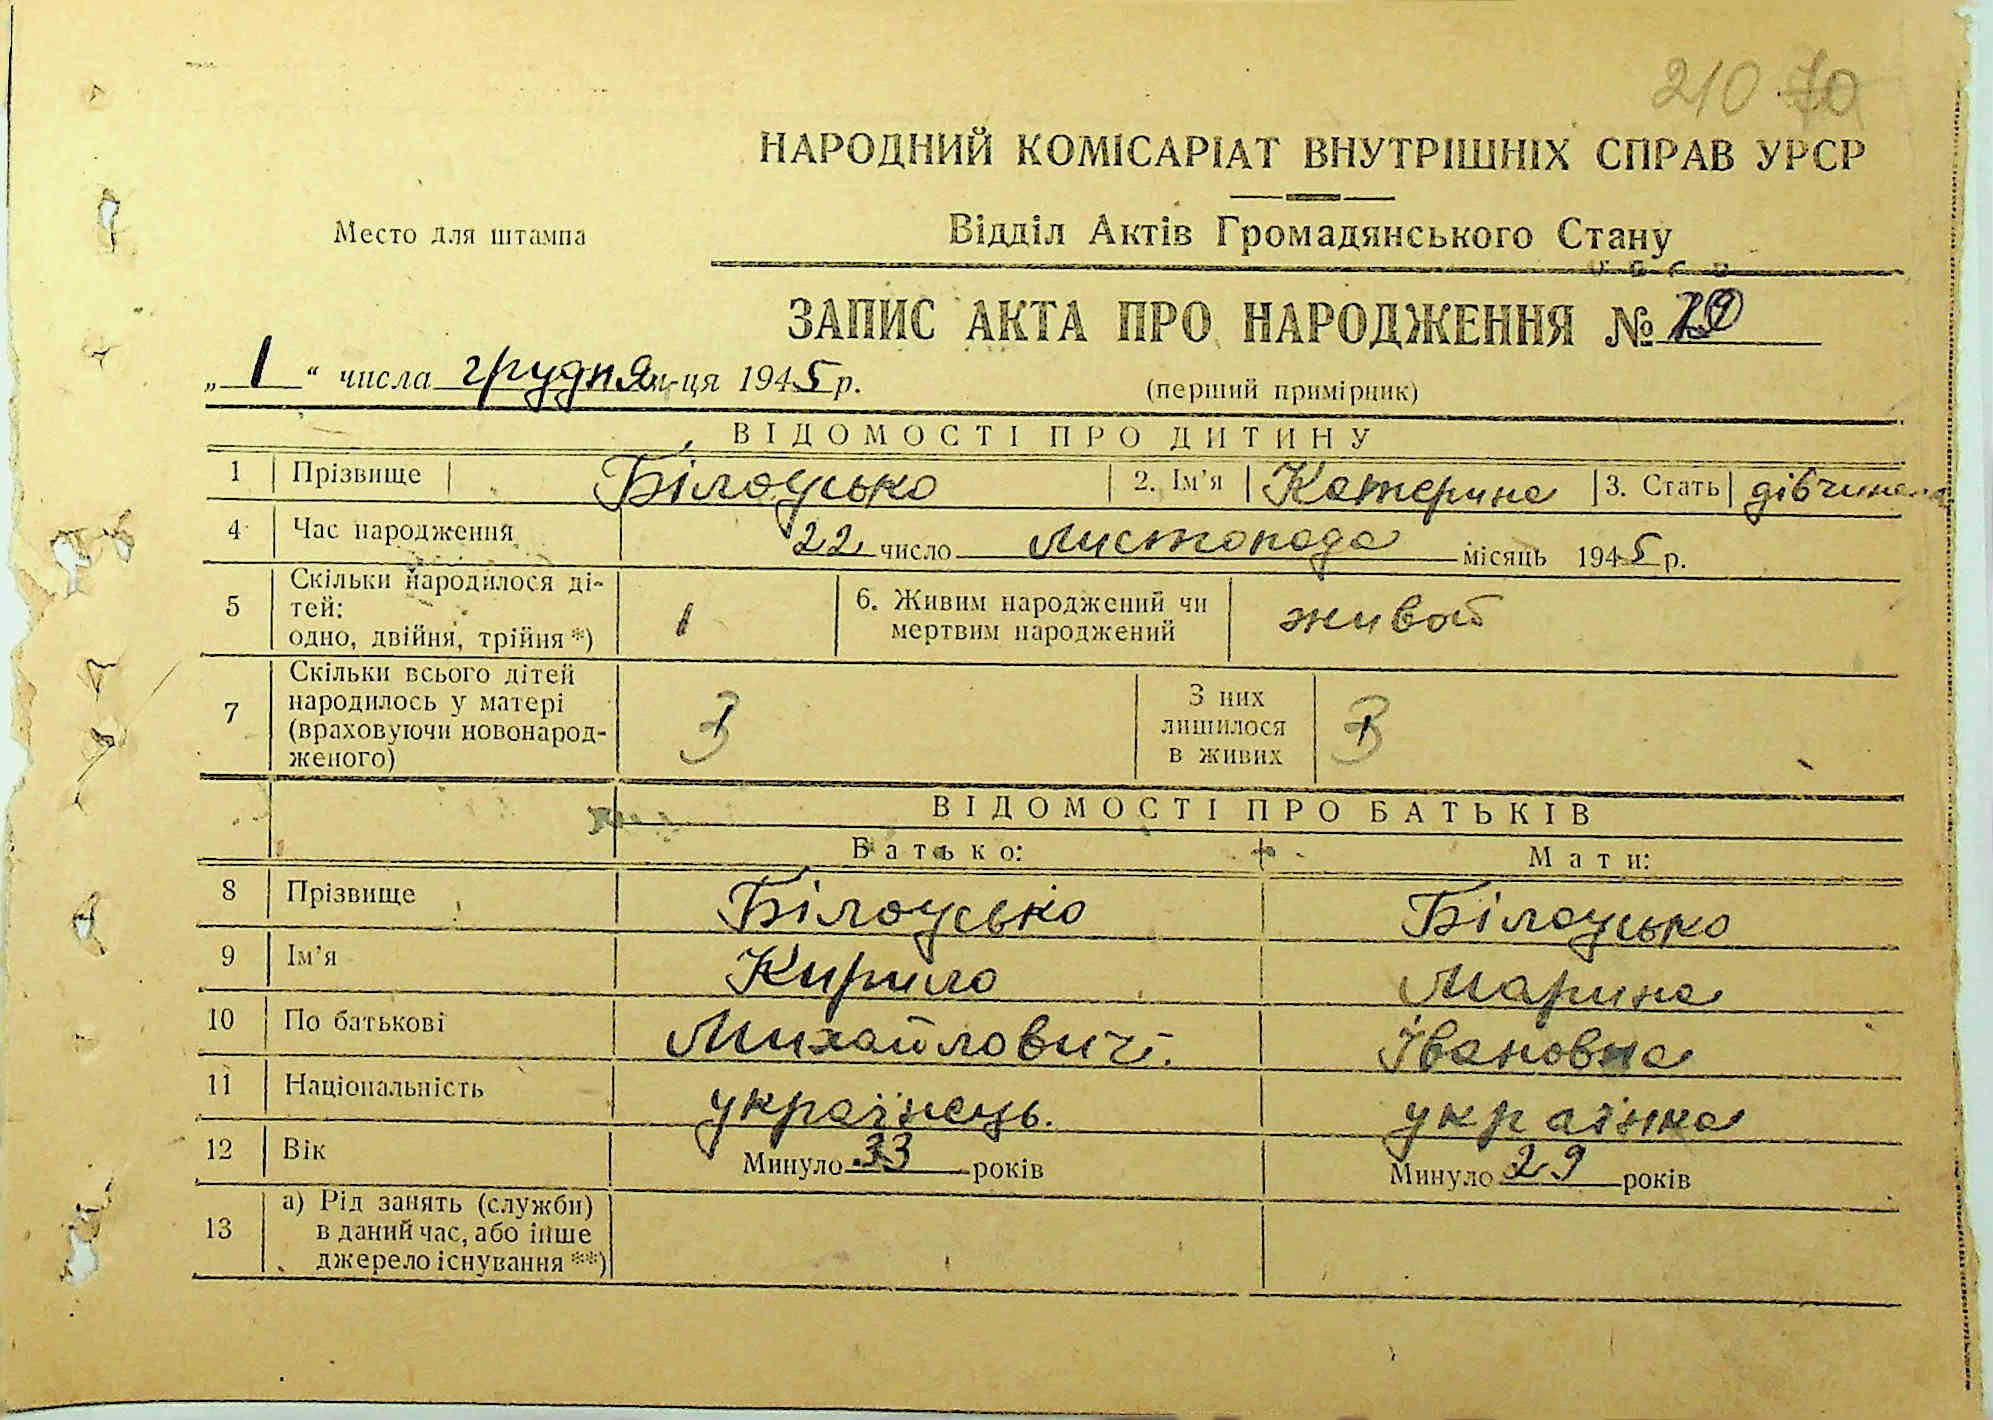 210 70
НАРОДНИЙ КОМІСАРІАТ ВНУТРІШНІХ СПРАВ УРСР
Место для штампа
Відділ Актів Громадянського Стану
ЗАПИС АКТА ПРО НАРОДЖЕННЯ №
„ 1 “ числа грудня м-ця 1945 р.
(перший примірник)
ВІДОМОСТІ ПРО ДИТИНУ
1 Прізвище Білоусько 2. Ім'я Катерина 3. Стать дівчинка
4 Час народження 22 число листопада місяць 1945 р.
5 Скільки народилося ді-
тей:
одно, двійня, трійня *) 1
6. Живим народжений чи
мертвим народжений живой
7 Скільки всього дітей
народилось у матері
(враховуючи новонарод-
женого) 3
З них
лишилося
в живих 3
ВІДОМОСТІ ПРО БАТЬКІВ
Батько: Мати:
8 Прізвище Білоусько Білоусько
9 Ім'я Кирило Марина
10 По батькові Михайлович. Івановна
11 Національність українець. українка
12 Вік Минуло 33 років Минуло 29 років
13 а) Рід занять (служби)
в даний час, або інше
джерело існування **)